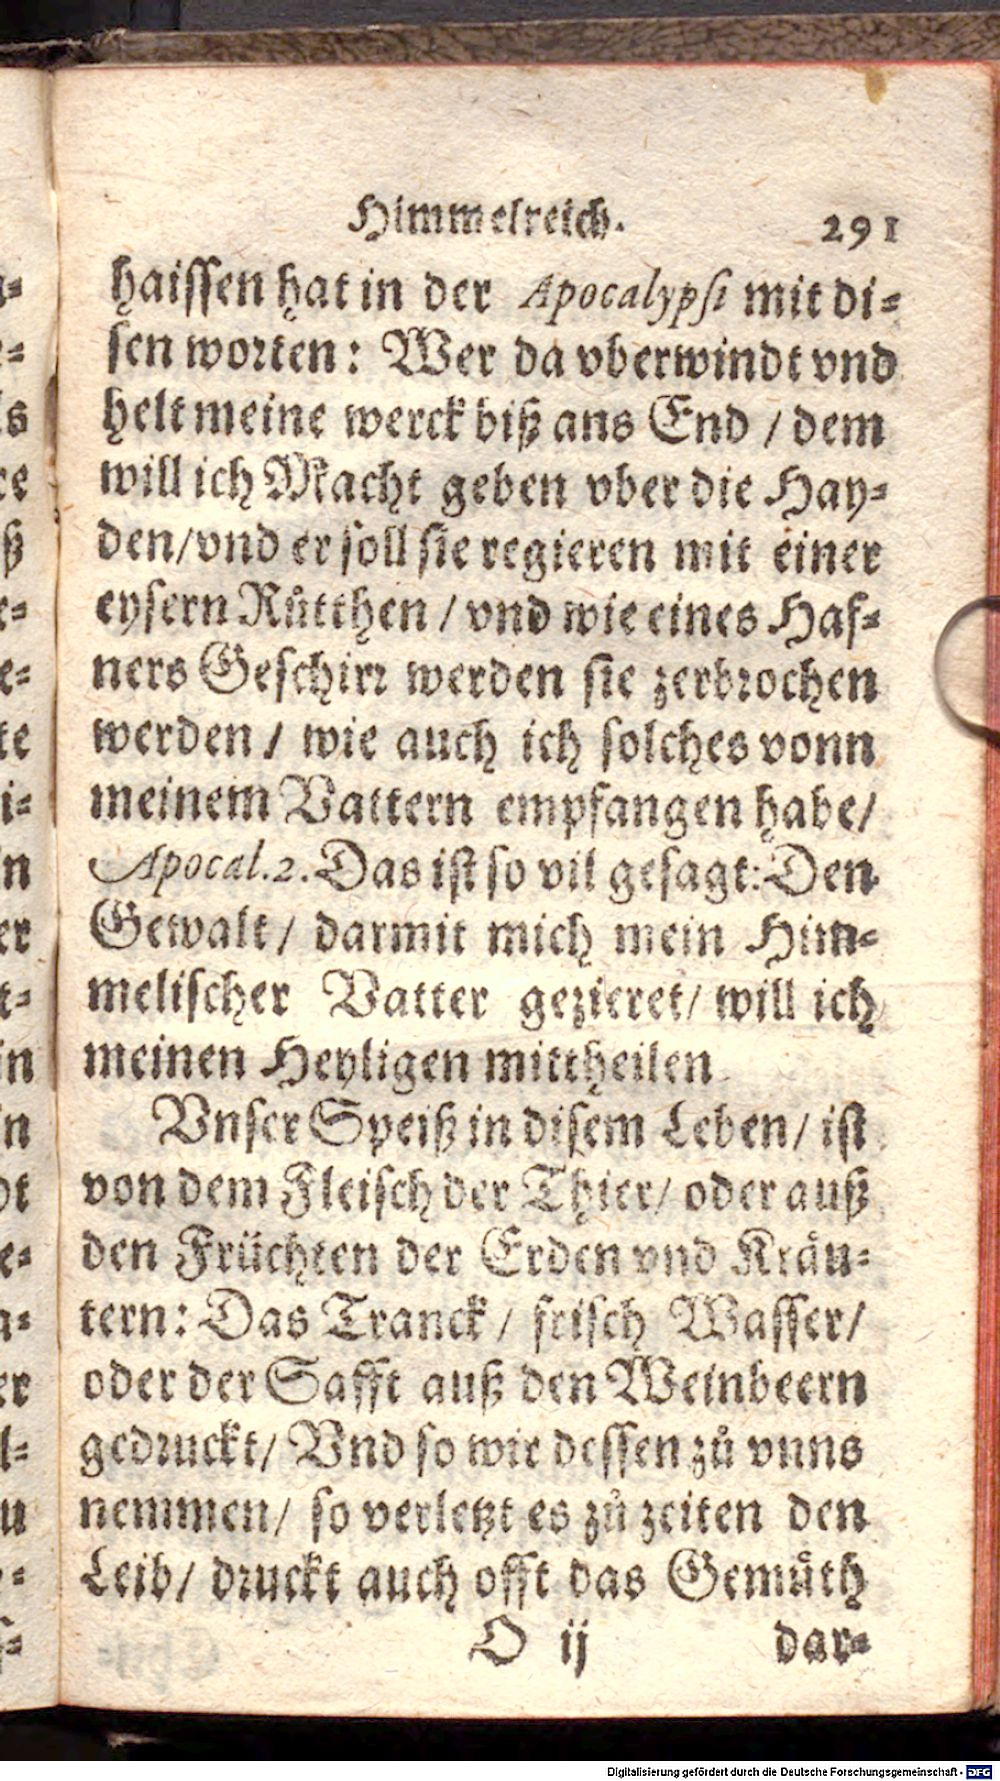 Himmelreich. 291
haissen hat in der Apocalypsi mit di⸗
sen worten: Wer da vberwindt vnd
helt meine werck biß ans End / dem
will ich Macht geben vber die Hay⸗
den/vnd er soll sie regieren mit einer
eysern Ruͤtthen / vnd wie eines Haf⸗
ners Geschirr werden sie zerbrochen
werden / wie auch ich solches vonn
meinem Vattern empfangen habe/
Apocal.2. Das ist so vil gesagt: Den
Gewalt / darmit mich mein Him⸗
melischer Vatter gezieret/ will ich
meinen Heyligen mittheilen.
Vnser Speiß in disem Leben/ ist
von dem Fleisch der Thier/ oder auß
den Früchten der Erden vnd Kräu⸗
tern: Das Tranck / frisch Wasser/
oder der Safft auß den Weinbeern
gedruckt/ Vnd so wir dessen zů vnns
nemmen/ so verletzt es zů zeiten den
Leib/ druckt auch offt das Gemuͤth
O ij dar⸗
Digitalisierung gefördert durch die Deutsche Forschungsgemeinschaft - DFG